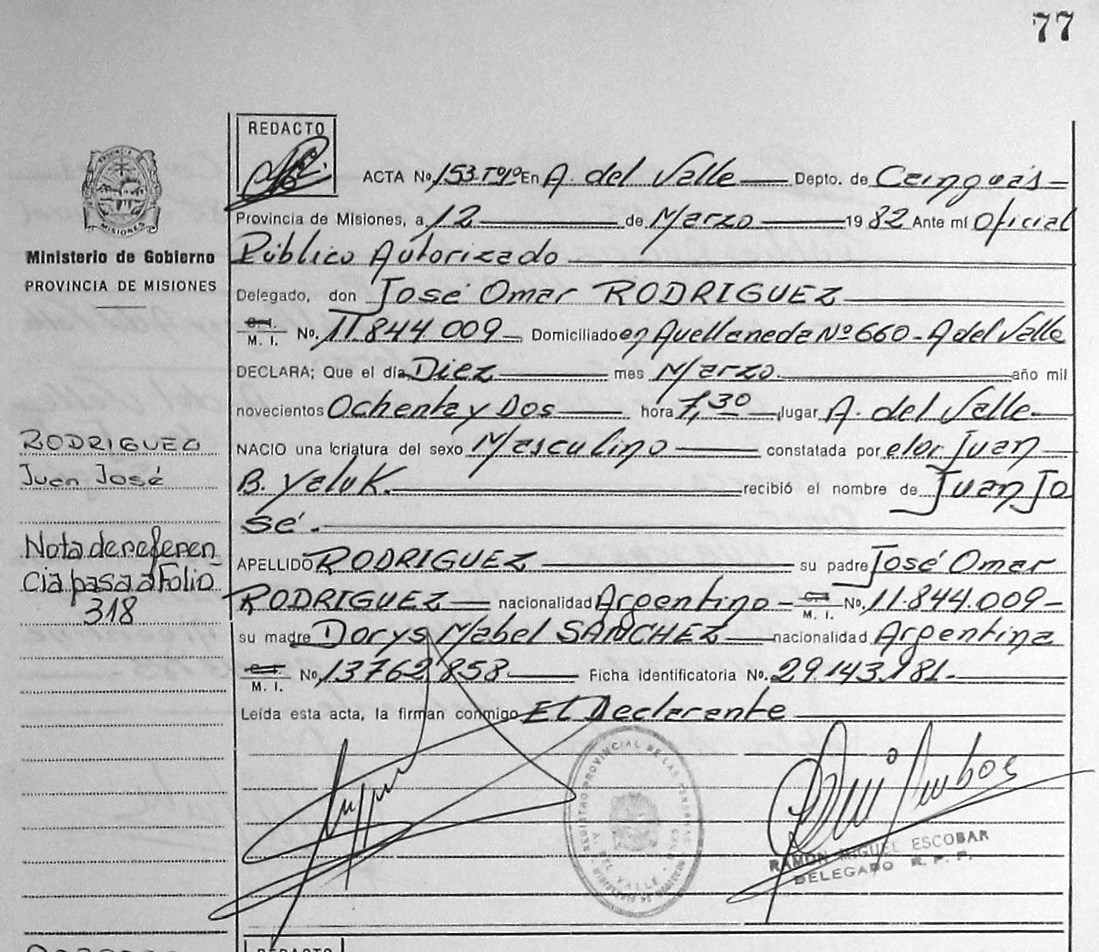 77
REDACTO
ACTA No. 153 Tº1º En A. del Valle Depto. de Cainguás
Provincia de Misiones, a 12 de Marzo 1982 Ante mí Oficial
Ministerio de Gobierno
PROVINCIA DE MISIONES
Público Autorizado
Delegado, don José Omar RODRIGUEZ
M. I. No. 11.844.009 Domiciliado en Avellaneda Nº 660 - A del Valle
DECLARA; Que el día Diez mes Marzo. año mil
novecientos Ochenta y Dos hora 7,30 lugar A. del Valle
NACIO una criatura del sexo Masculino constatada por el Juan
B. Yaluk. recibió el nombre de Juan Jo
sé.
RODRIGUEZ
Juan José
Nota de referen
cia pasa a Folio
318
APELLIDO RODRIGUEZ su padre José Omar
RODRIGUEZ nacionalidad Argentino - C.I. M. I. No. 11.844.009 -
su madre Dorys Mabel SANCHEZ nacionalidad Argentina
C.I. M. I. No. 13762858 Ficha identificatoria No. 29.143.181.
Leída esta acta, la firman conmigo El Declarante
REGISTRO PROVINCIAL DE LAS PERSONAS
A. DEL VALLE
RAMON MIGUEL ESCOBAR
DELEGADO R. P. P.
REDACTO